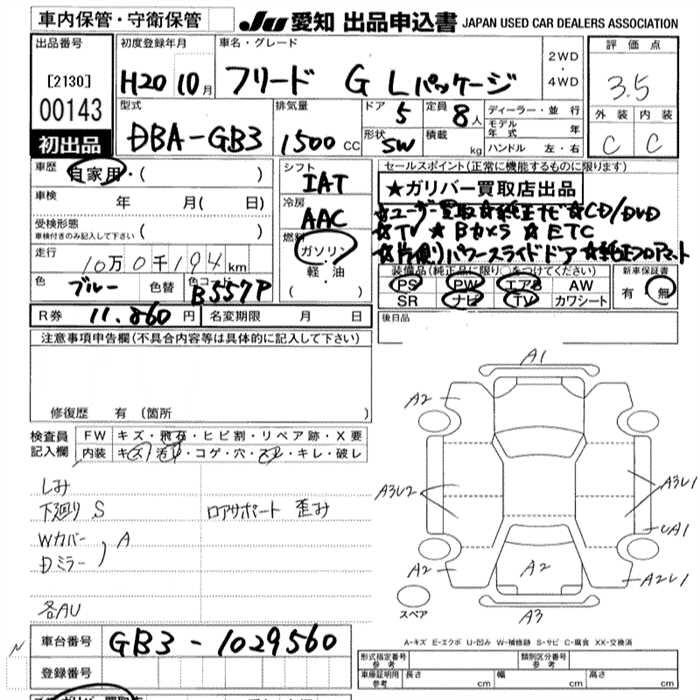 車内保管・守衛保管
JU 愛知 出品申込書 JAPAN USED CAR DEALERS ASSOCIATION
出品番号 初度登録年月 車名・グレード 2WD・4WD 評価点
[2130] H20 10月 フリード G Lパッケージ 3.5
00143 型式 排気量 ドア 5 定員 8人 ディーラー・並行 外装 内装
初出品 DBA-GB3 1500CC 形状 SW 積載 kg モデル年式 年 C C
ハンドル 左・右
車歴 自家用・( ) シフト IAT セールスポイント(正常に機能するものに限ります)
車検 年 月( 日) 冷房 AAC ★ガリバー買取店出品
受検形態 ( ) 燃料 ★ユーザー買取★純正ナビ★CD/DVD
車検付きのみ記入して下さい ガソリン・軽油 ★TV★Bカメラ★ETC
走行 10万0千194km ( ) ★片側パワースライドドア★純正フロアマット
色 ブルー 色替 色コード B557P 装備品(純正品に限り○をつけてください) 新車保証書
PS PW エアB AW 有・無
SR ナビ TV カワシート
R券 11,260円 名変期限 月 日 後日品
注意事項申告欄(不具合内容等は具体的に記入して下さい)
修復歴 有(箇所 )
検査員記入欄 FW キズ・飛石・ヒビ割・リペア跡・X要
内装 キズ・汚れ・コゲ・穴・スレ・キレ・破レ
しみ
下廻り S ロアサポート 歪み
Wカバー
Dミラー ) A
各AU
A1
A2
A3U2 A3U1
UA1
A2 A2 A2U1
スペア A3
A-キズ E-エクボ U-凹み W-補修跡 S-サビ C-腐食 XX-交換済
車台番号 GB3-1029560
登録番号
型式指定番号 参考 類別区分番号 参考
車庫証明用 参考 長さ cm 幅 cm 高さ cm